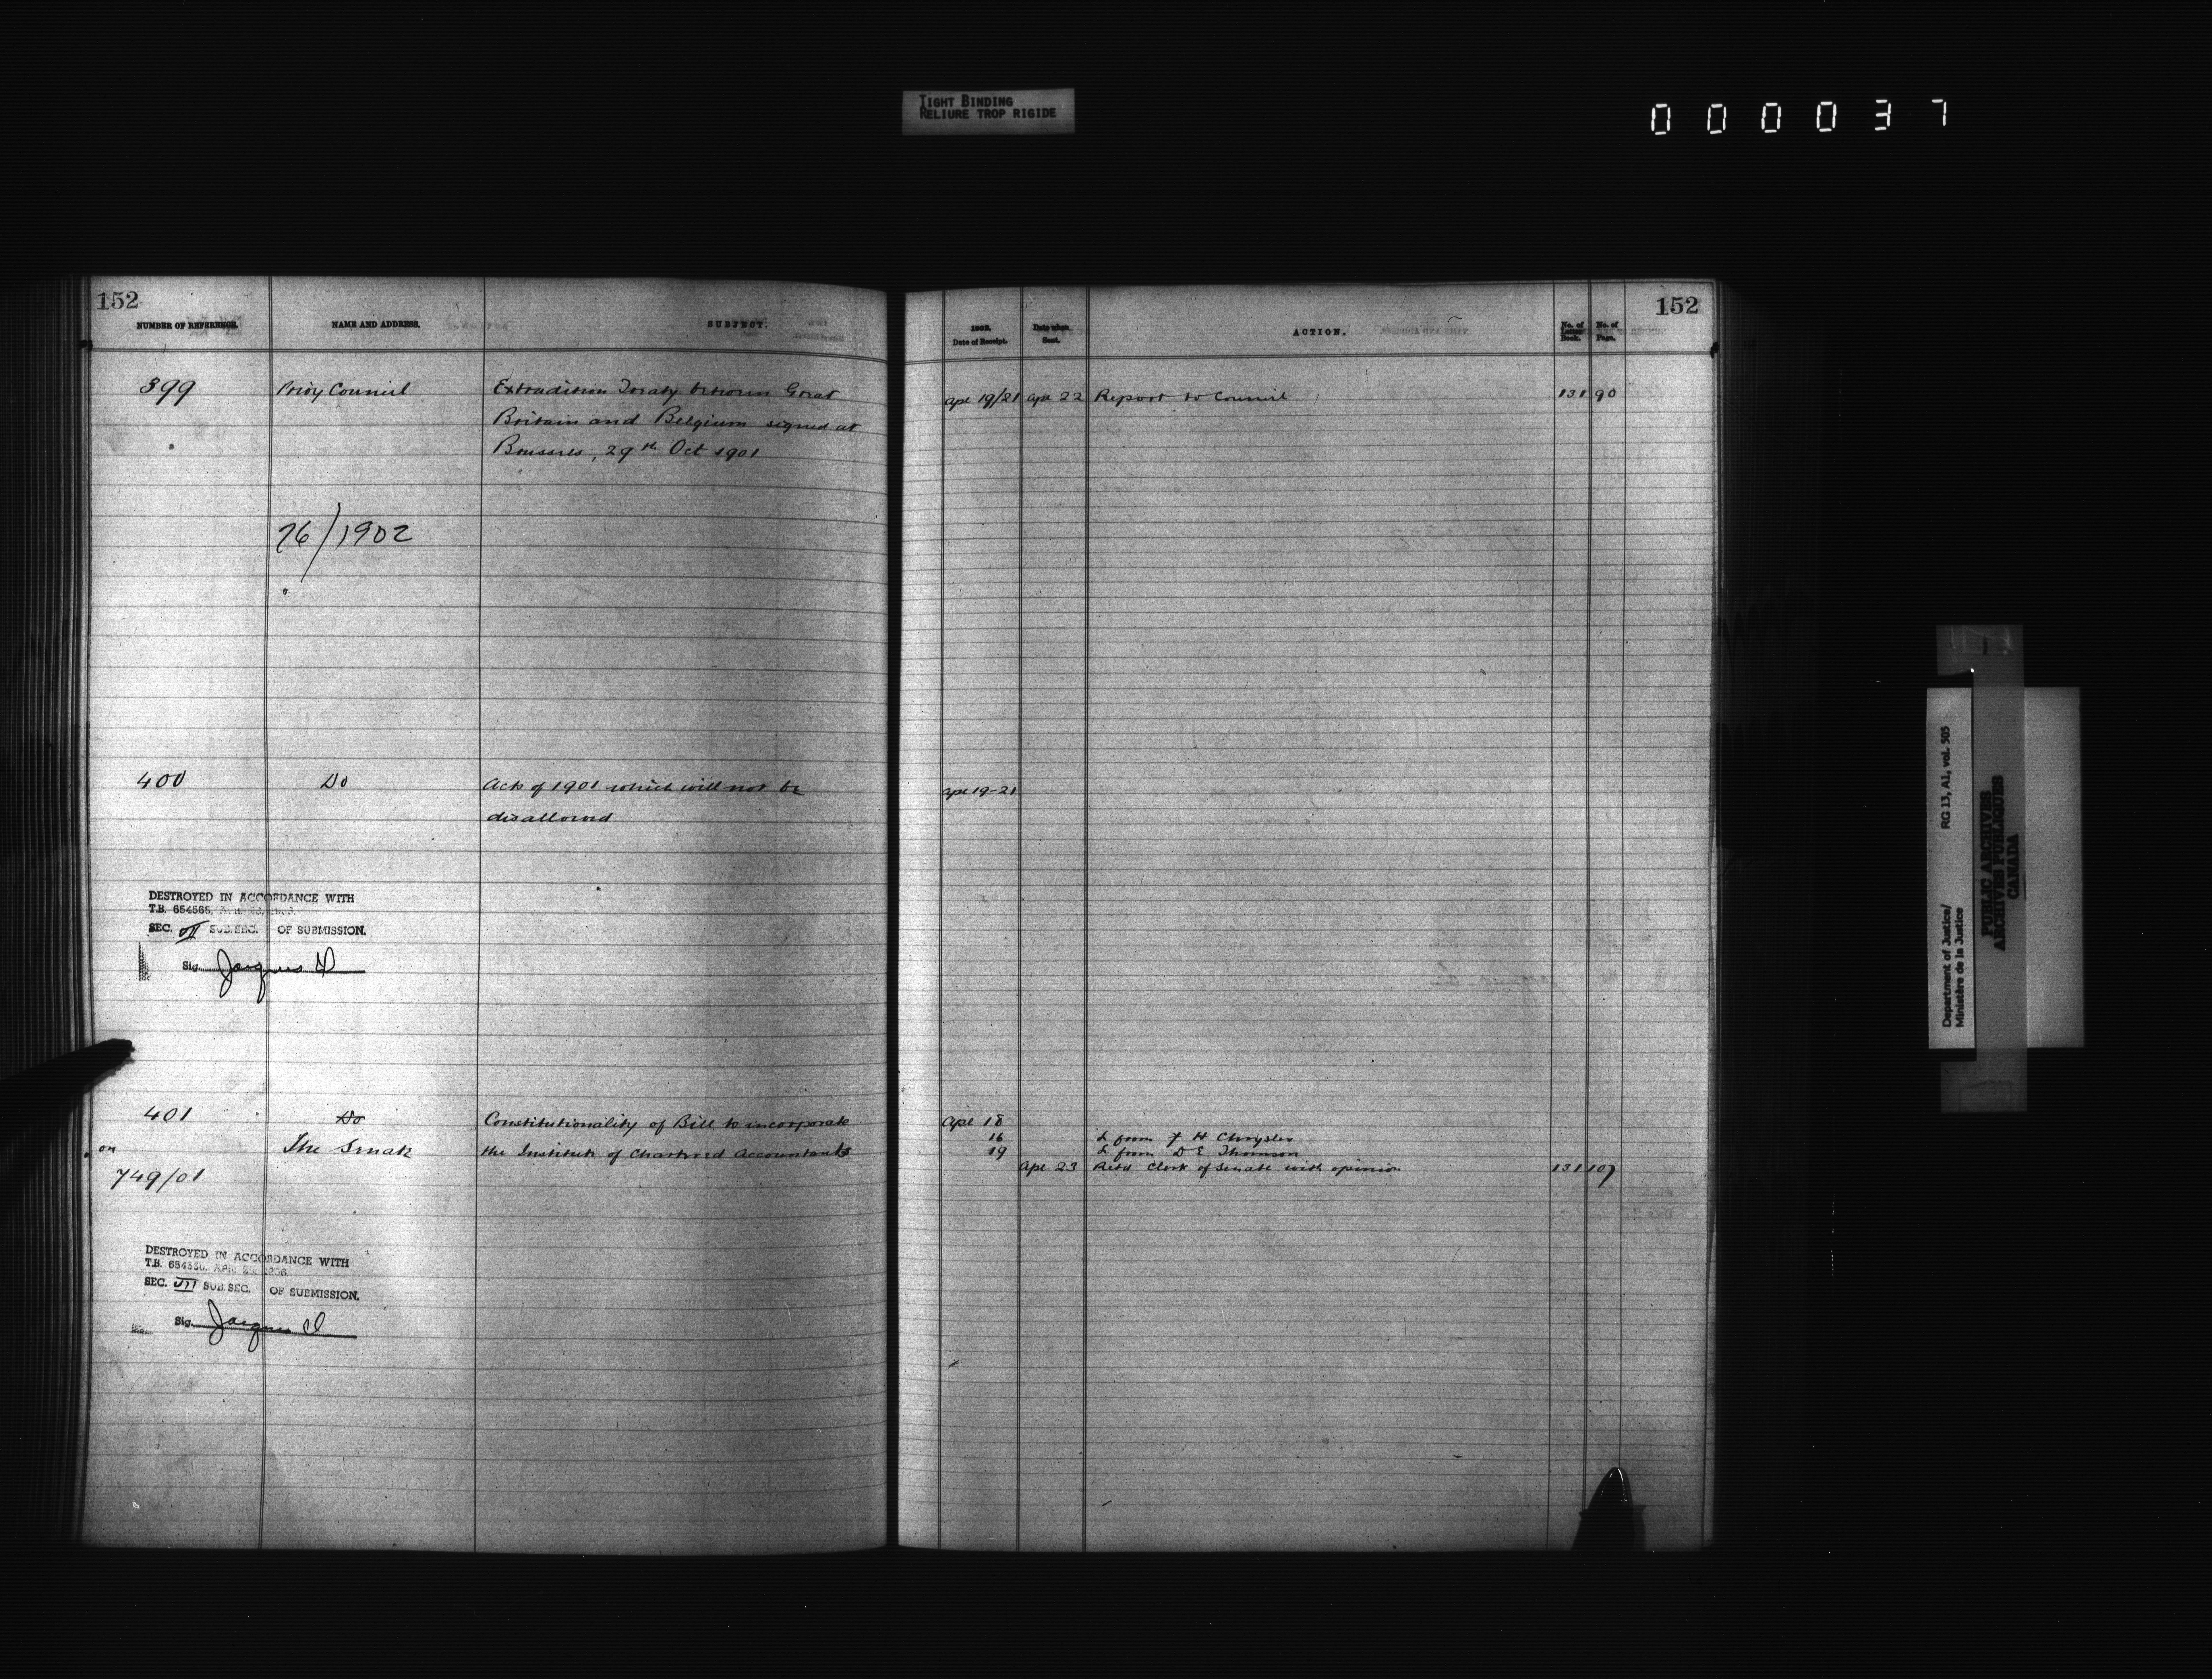 TIGHT BINDING
RELIURE TROP RIGIDE
000037
152
NUMBER OF REFERENCE.
NAME AND ADDRESS.
SUBJECT.
399
Privy Council
Extradition Treaty between Great
Britain and Belgium signed at
Brussels, 29th Oct 1901
76/1902
400
Do
Acts of 1901 which will not be
disallowed
DESTROYED IN ACCORDANCE WITH
T.B. 654568,
SEC. VII SUB. SEC. OF SUBMISSION.
Sig. Jacques D
401
Do
Constitutionality of Bill to incorporate
on
The Senate
the Institute of Chartered Accountants
749/01
DESTROYED IN ACCORDANCE WITH
T.B. APR.
SEC. VII SUB. SEC. OF SUBMISSION.
Sig. Jacques D
152
1902.
Date of Receipt.
Date when
Sent.
ACTION.
No. of
Letter
Book.
No. of
Page.
Apl 19/21 Apl 22 Report to Council 131 90
Apl 19-21
Apl 18
16 L from F H Chrysler
19 L from D E Thomson
Apl 23 Retd Clerk of Senate with opinion 131 107
Department of Justice/
Ministère de la Justice
RG 13, A1, vol. 505
PUBLIC ARCHIVES
ARCHIVES PUBLIQUES
CANADA